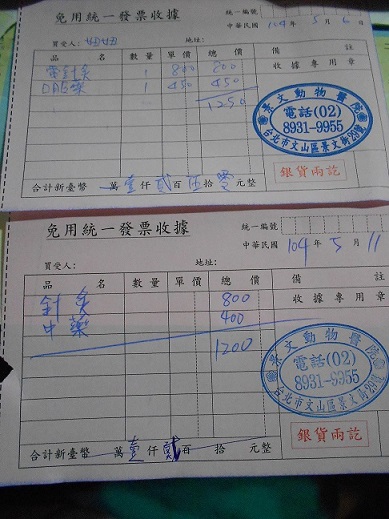 免用統一發票收據
統一編號
中華民國 104 年 5 月 6 日
買受人: 妞妞 地址:
品 名 數量 單價 總價 備 註
電針灸 1 800 800 收據專用章
1 450 450
1250
景文動物醫院
電話(02)
8931-9955
台北市文山區景文街29號
銀貨兩訖
合計新臺幣 萬壹仟貳百伍拾零元整
免用統一發票收據
統一編號
中華民國 104 年 5 月 11
買受人: 地址:
品 名 數量 單價 總價 備 註
針灸 800 收據專用章
中藥 400
1200
景文動物醫院
電話(02)
8931-9955
台北市文山區景文街29號
銀貨兩訖
合計新臺幣 萬壹仟貳百 拾 元整